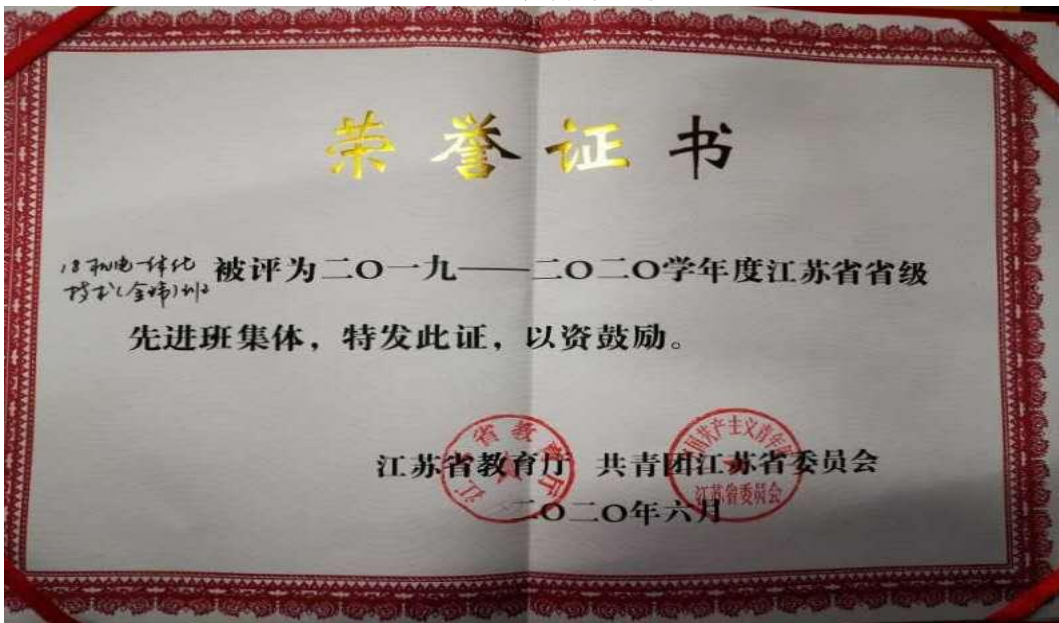 荣誉证书
18机电一体化
技术(金蝉)班
被评为二〇一九——二〇二〇学年度江苏省省级
先进班集体，特发此证，以资鼓励。
江苏省教育厅 共青团江苏省委员会
二〇二〇年六月
江苏省教育厅
中国共产主义青年团
江苏省委员会